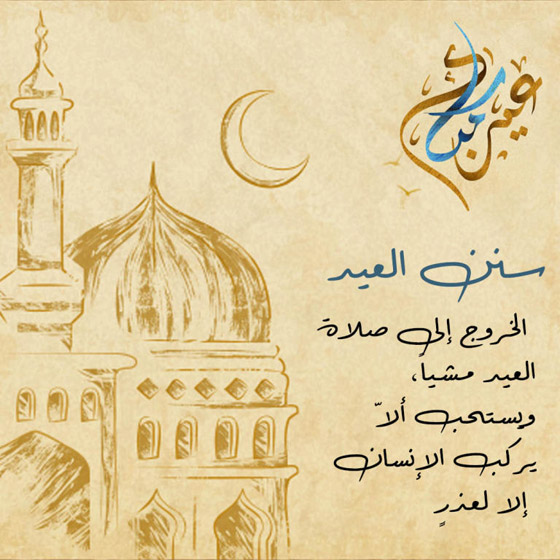 عيد مبارك
سنن العيد
الخروج إلى صلاة
العيد مشياً،
ويستحب ألاّ
يركب الإنسان
إلا لعذرٍ